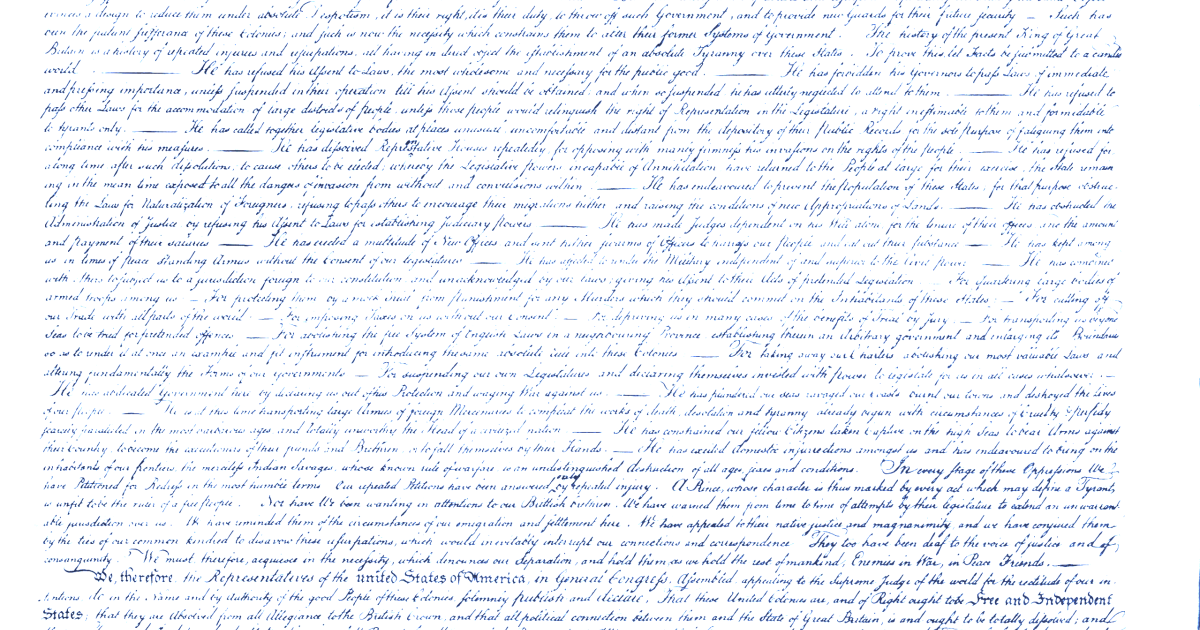 evinces a design to reduce them under absolute Despotism, it is their right, it is their duty, to throw off such Government, and to provide new Guards for their future security — Such has
been the patient sufferance of these Colonies; and such is now the necessity which constrains them to alter their former Systems of Government. The history of the present King of Great
Britain is a history of repeated injuries and usurpations, all having in direct object the establishment of an absolute Tyranny over these States. To prove this, let Facts be submitted to a candid
world. — He has refused his Assent to Laws, the most wholesome and necessary for the public good. — He has forbidden his Governors to pass Laws of immediate
and pressing importance, unless suspended in their operation till his Assent should be obtained; and when so suspended, he has utterly neglected to attend to them. — He has refused to
pass other Laws for the accommodation of large districts of people, unless those people would relinquish the right of Representation in the Legislature, a right inestimable to them and formidable
to tyrants only. — He has called together legislative bodies at places unusual, uncomfortable, and distant from the depository of their Public Records, for the sole purpose of fatiguing them into
compliance with his measures. — He has dissolved Representative Houses repeatedly, for opposing with manly firmness his invasions on the rights of the people. — He has refused for
a long time, after such dissolutions, to cause others to be elected; whereby the Legislative powers, incapable of Annihilation, have returned to the People at large for their exercise; the State remain
ing in the mean time exposed to all the dangers of invasion from without, and convulsions within. — He has endeavoured to prevent the population of these States; for that purpose obstruc-
ting the Laws for Naturalization of Foreigners; refusing to pass others to encourage their migrations hither, and raising the conditions of new Appropriations of Lands. — He has obstructed the
Administration of Justice, by refusing his Assent to Laws for establishing Judiciary powers. — He has made Judges dependent on his Will alone, for the tenure of their offices, and the amount
and payment of their salaries. — He has erected a multitude of New Offices, and sent hither swarms of Officers to harrass our people, and eat out their substance. — He has kept among
us, in times of peace, Standing Armies without the Consent of our legislatures. — He has affected to render the Military independent of and superior to the Civil power. — He has combined
with others to subject us to a jurisdiction foreign to our constitution, and unacknowledged by our laws; giving his Assent to their Acts of pretended Legislation: — For Quartering large bodies of
armed troops among us: — For protecting them, by a mock Trial, from punishment for any Murders which they should commit on the Inhabitants of these States: — For cutting off
our Trade with all parts of the world: — For imposing Taxes on us without our Consent: — For depriving us in many cases, of the benefits of Trial by Jury: — For transporting us beyond
Seas to be tried for pretended offences — For abolishing the free System of English Laws in a neighbouring Province, establishing therein an Arbitrary government, and enlarging its Boundaries
so as to render it at once an example and fit instrument for introducing the same absolute rule into these Colonies: — For taking away our Charters, abolishing our most valuable Laws, and
altering fundamentally the Forms of our Governments: — For suspending our own Legislatures, and declaring themselves invested with power to legislate for us in all cases whatsoever. —
He has abdicated Government here, by declaring us out of his Protection and waging War against us. — He has plundered our seas, ravaged our Coasts, burnt our towns, and destroyed the lives
of our people. — He is at this time transporting large Armies of foreign Mercenaries to compleat the works of death, desolation and tyranny, already begun with circumstances of Cruelty & perfidy
scarcely paralleled in the most barbarous ages, and totally unworthy the Head of a civilized nation. — He has constrained our fellow Citizens taken Captive on the high Seas to bear Arms against
their Country, to become the executioners of their friends and Brethren, or to fall themselves by their Hands. — He has excited domestic insurrections amongst us, and has endeavoured to bring on the
inhabitants of our frontiers, the merciless Indian Savages, whose known rule of warfare, is an undistinguished destruction of all ages, sexes and conditions. In every stage of these Oppressions We
have Petitioned for Redress in the most humble terms: Our repeated Petitions have been answered only by repeated injury. A Prince, whose character is thus marked by every act which may define a Tyrant,
is unfit to be the ruler of a free people. Nor have We been wanting in attentions to our Brittish brethren. We have warned them from time to time of attempts by their legislature to extend an unwarrant
able jurisdiction over us. We have reminded them of the circumstances of our emigration and settlement here. We have appealed to their native justice and magnanimity, and we have conjured them
by the ties of our common kindred to disavow these usurpations, which, would inevitably interrupt our connections and correspondence. They too have been deaf to the voice of justice and of
consanguinity. We must, therefore, acquiesce in the necessity, which denounces our Separation, and hold them, as we hold the rest of mankind, Enemies in War, in Peace Friends. —
We, therefore, the Representatives of the united States of America, in General Congress, Assembled, appealing to the Supreme Judge of the world for the rectitude of our in-
tentions, do, in the Name, and by Authority of the good People of these Colonies, solemnly publish and declare, That these United Colonies are, and of Right ought to be Free and Independent
States; that they are Absolved from all Allegiance to the British Crown, and that all political connection between them and the State of Great Britain, is and ought to be totally dissolved; and